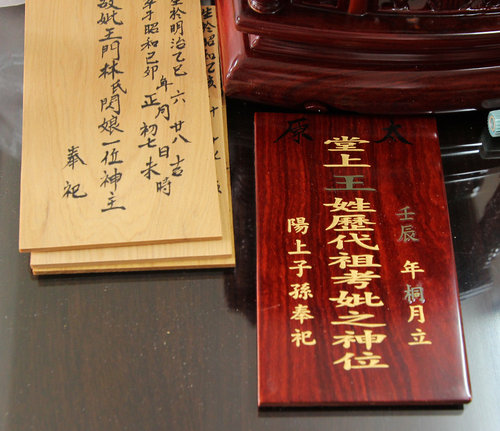 太原
壬辰年桐月立
堂上王姓歷代祖考妣之神位
陽上子孫奉祀
生於明治乙巳年六月廿八日吉
卒于昭和己卯年正月初七日未時
故妣王門林氏閃娘一位神主
奉祀
生於昭和乙亥